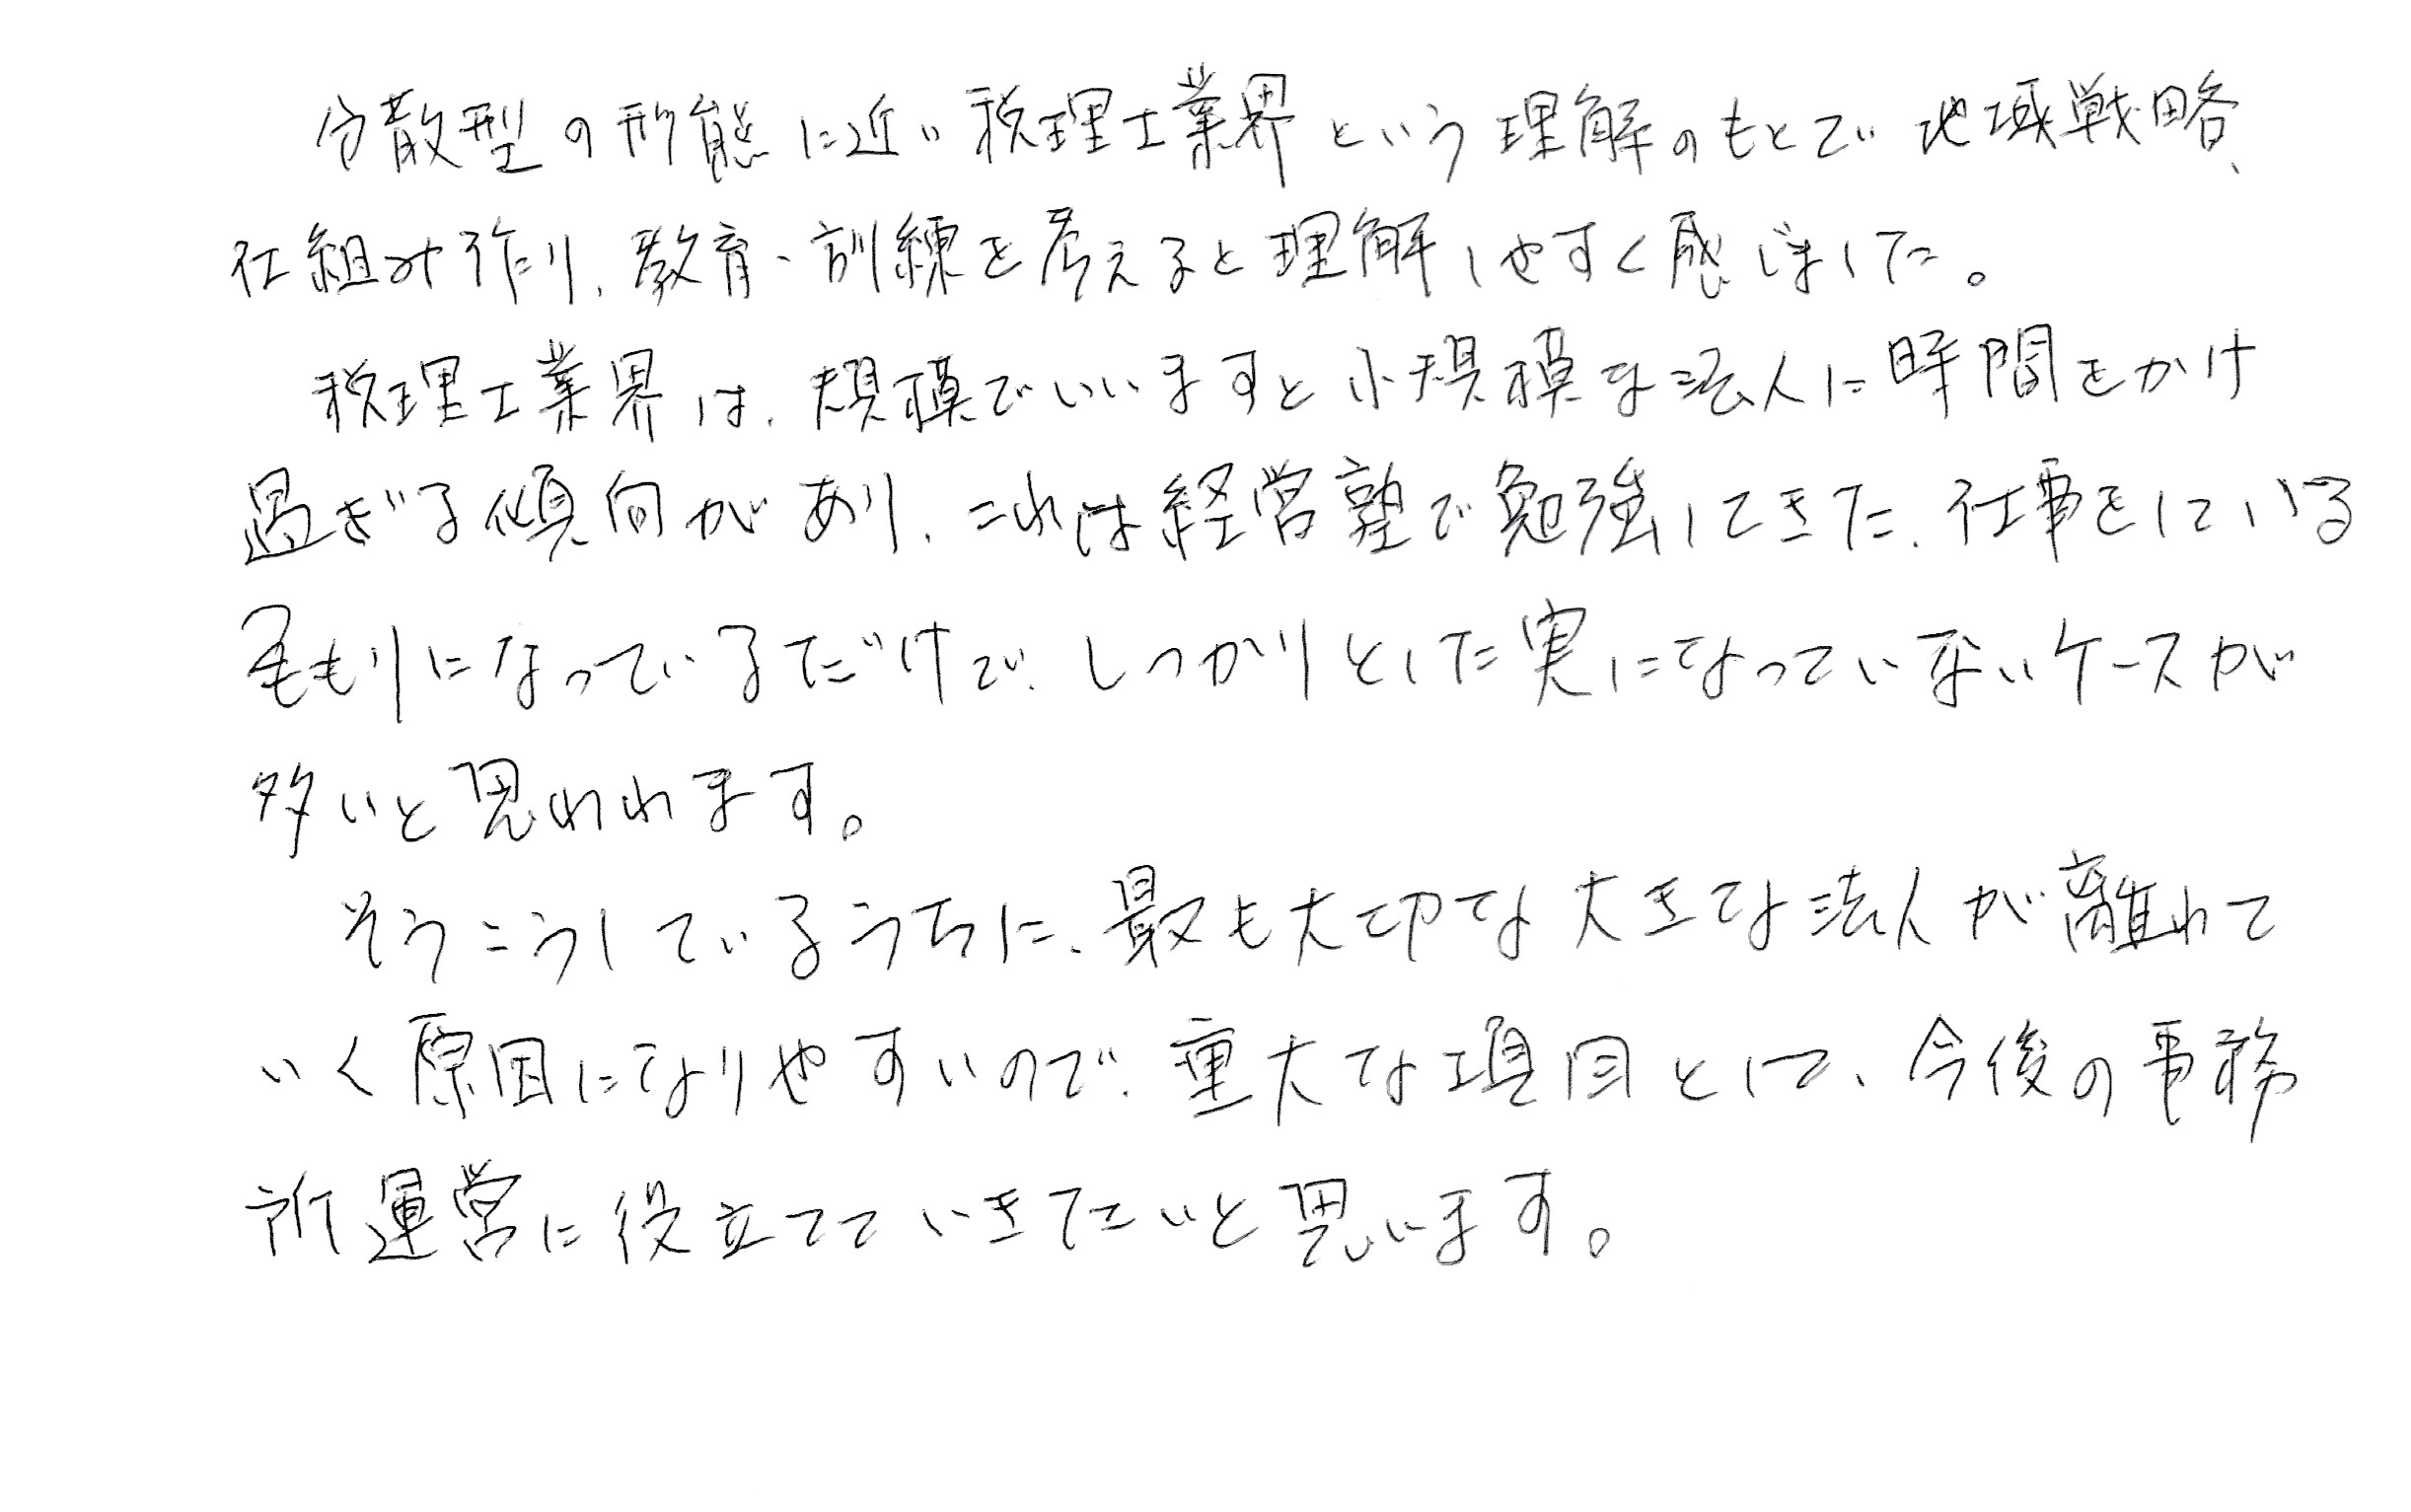 分散型の形態に近い税理士業界という理解のもとで地域戦略、
仕組み作り、教育、訓練を考えると理解しやすく感じました。
税理士業界は、規模でいいますと小規模な法人に時間をかけ
過ぎる傾向があり、これは経営塾で勉強してきた、仕事をしている
つもりになっているだけで、しっかりとした実になっていないケースが
多いと思われます。
そうこうしているうちに、最も大切な大きな法人が離れて
いく原因になりやすいので、重大な項目として、今後の事務
所運営に役立てていきたいと思います。